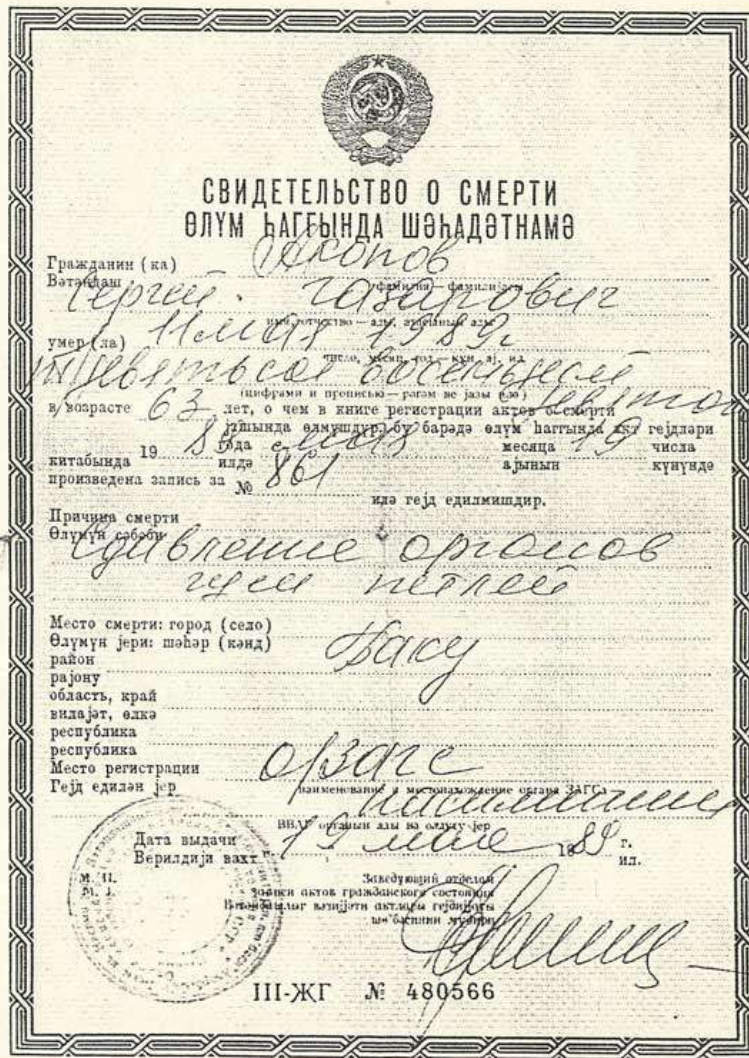 СВИДЕТЕЛЬСТВО О СМЕРТИ
ӨЛҮМ ҺАГГЫНДА ШӘҺАДӘТНАМӘ
Гражданин (ка) Акопов
Вәтәндаш
(фамилия) — фамилијасы
Сергей Газарович
имя, отчество — ады, атасынын ады
умер (ла) 11 мая 1989г
число, месяц, год — күн, ај, ил
тыс. девятьсот восемьдесят
(цифрами и прописью — рәгәм вә јазы илә)
девятого
в возрасте 63 лет, о чем в книге регистрации актов о смерти
јашында өлмүшдүр, бу барәдә өлүм һаггында акт гејдләри
19 89 года мая месяца 19 числа
китабында илдә ајынын күнүндә
произведена запись за № 861
илә гејд едилмишдир.
Причина смерти
Өлүмүн сәбәби
Сдавление органов
шеи петлей
Место смерти: город (село)
Өлүмүн јери: шәһәр (кәнд) Баку
район
рајону
область, край
вилајәт, өлкә
республика
республика
Место регистрации
Гејд едилән јер
наименование и местонахождение органа ЗАГСа
ВВАГ органын ады вә олдуғу јер
Дата выдачи 19 мая 1989 г.
Верилдији вахт ил.
М. П.
М. Ј.
Заведующий отделом
записи актов гражданского состояния
Вәтәндашлыг вәзијјәти актлары гејдијјаты
шө'бәсинин мүдири
III-ЖГ № 480566